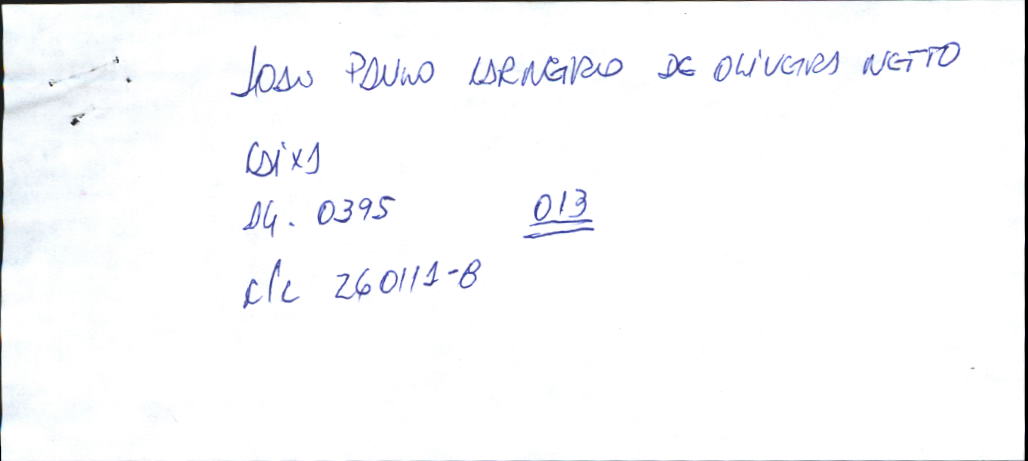 JOAO PAULO CARNEIRO DE OLIVEIRA NETTO
CAIXA
AG. 0395 013
c/c 260111-8